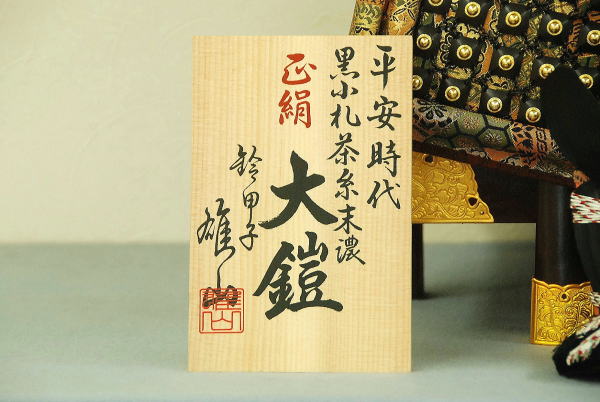 平安時代
黒小札茶糸末濃
正絹
大鎧
鈴甲子
雄山
雄山